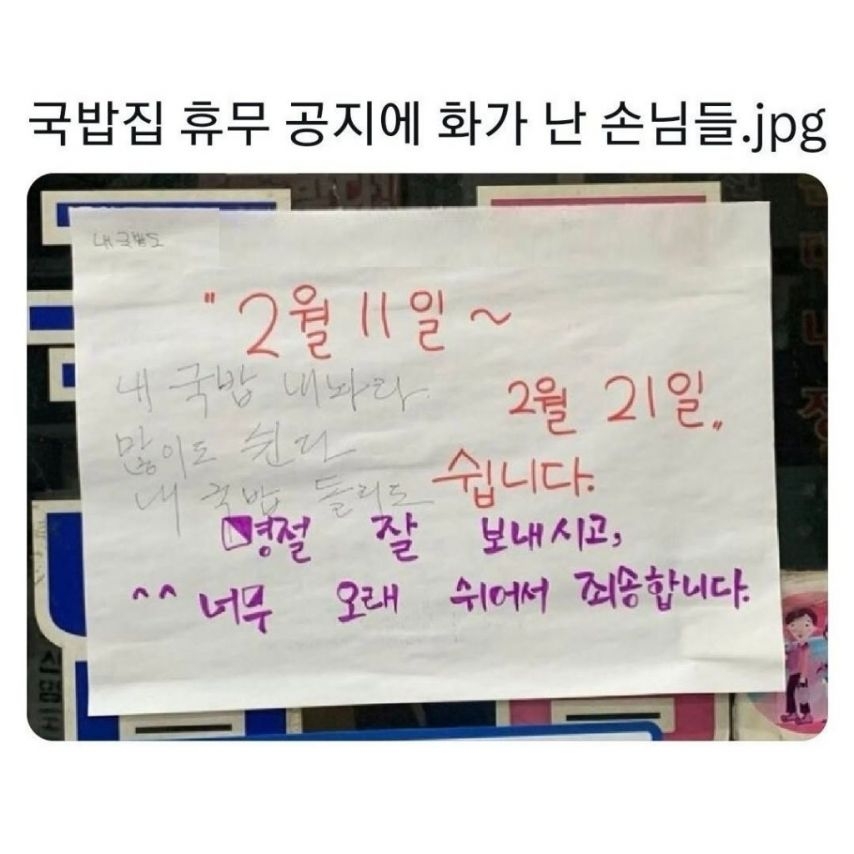 국밥집 휴무 공지에 화가 난 손님들.jpg
내 국밥도
" 2월 11일 ~
내 국밥 내놔라
2월 21일 "
많이도 쉰다
쉽니다.
내 국밥 돌리도
명절 잘 보내시고,
^^ 너무 오래 쉬어서 죄송합니다.